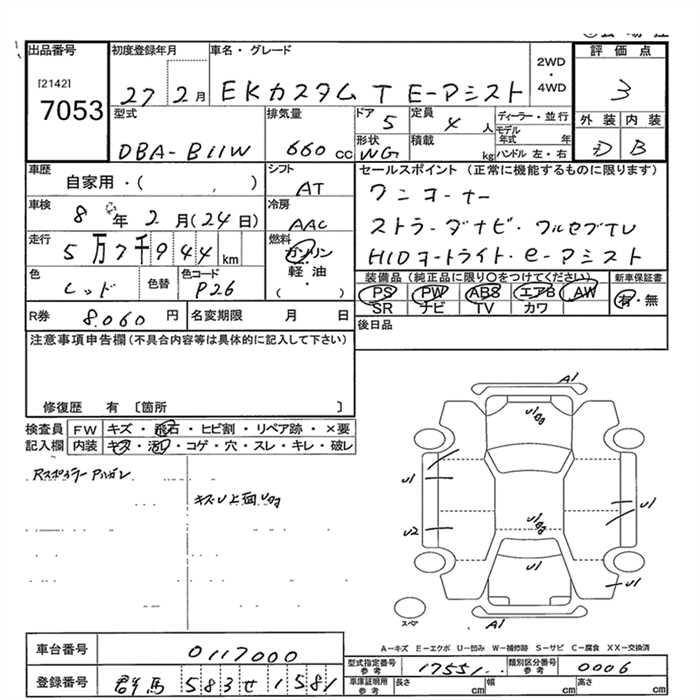 出品番号
[2142]
7053
初度登録年月
27 2月
車名・グレード
EKカスタム T E-アシスト
2WD
・
4WD
評価点
3
型式
DBA-B11W
排気量
660 cc
ドア 5
形状 WG
定員 4 人
積載 kg
ディーラー・並行
モデル年式 年
ハンドル 左・右
外装 内装
D B
車歴
自家用・( )
シフト
AT
セールスポイント (正常に機能するものに限ります)
ワンオーナー
ストラーダナビ・フルセグTV
HIDヘッドライト・e-アシスト
車検
8年 2月(24日)
冷房
AAC
走行
5万7千944km
燃料
ガソリン
軽油
( )
色
レッド
色替
色コード
P26
装備品 (純正品に限り○をつけてください)
PS PW ABS エアB AW
SR ナビ TV カワ
新車保証書
有・無
R券 8.060円
名変期限 月 日
後日品
注意事項申告欄(不具合内容等は具体的に記入して下さい)
修復歴 有 〔箇所 〕
検査員
記入欄
FW キズ・飛石・ヒビ割・リペア跡・×要
内装 キズ・汚レ・コゲ・穴・スレ・キレ・破レ
A1
U1
U1
U2
U1
U1
U1
U1
A1
スペア
A-キズ E-エクボ U-凹み W-補修跡 S-サビ C-腐食 XX-交換済
車台番号 0117000
登録番号 群馬 583 せ 1581
型式指定番号 参考 17551
類別区分番号 参考 0006
車庫証明用 参考 長さ cm 幅 cm 高さ cm